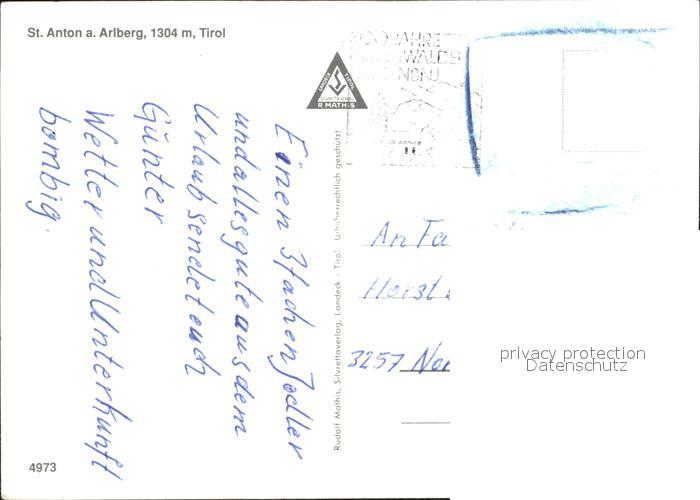 St. Anton a. Arlberg, 1304 m, Tirol
Einen 3fachen Jodler
und alles gute aus dem
Urlaub sendet euch
Günter
Wetter und Unterkunft
bombig.
R. MATHIS
Rudolf Mathis, Silvrettaverlag, Landeck - Tirol. Urheberrechtlich geschützt
JAHRE
An Fa
Horst
3257
privacy protection
Datenschutz
4973